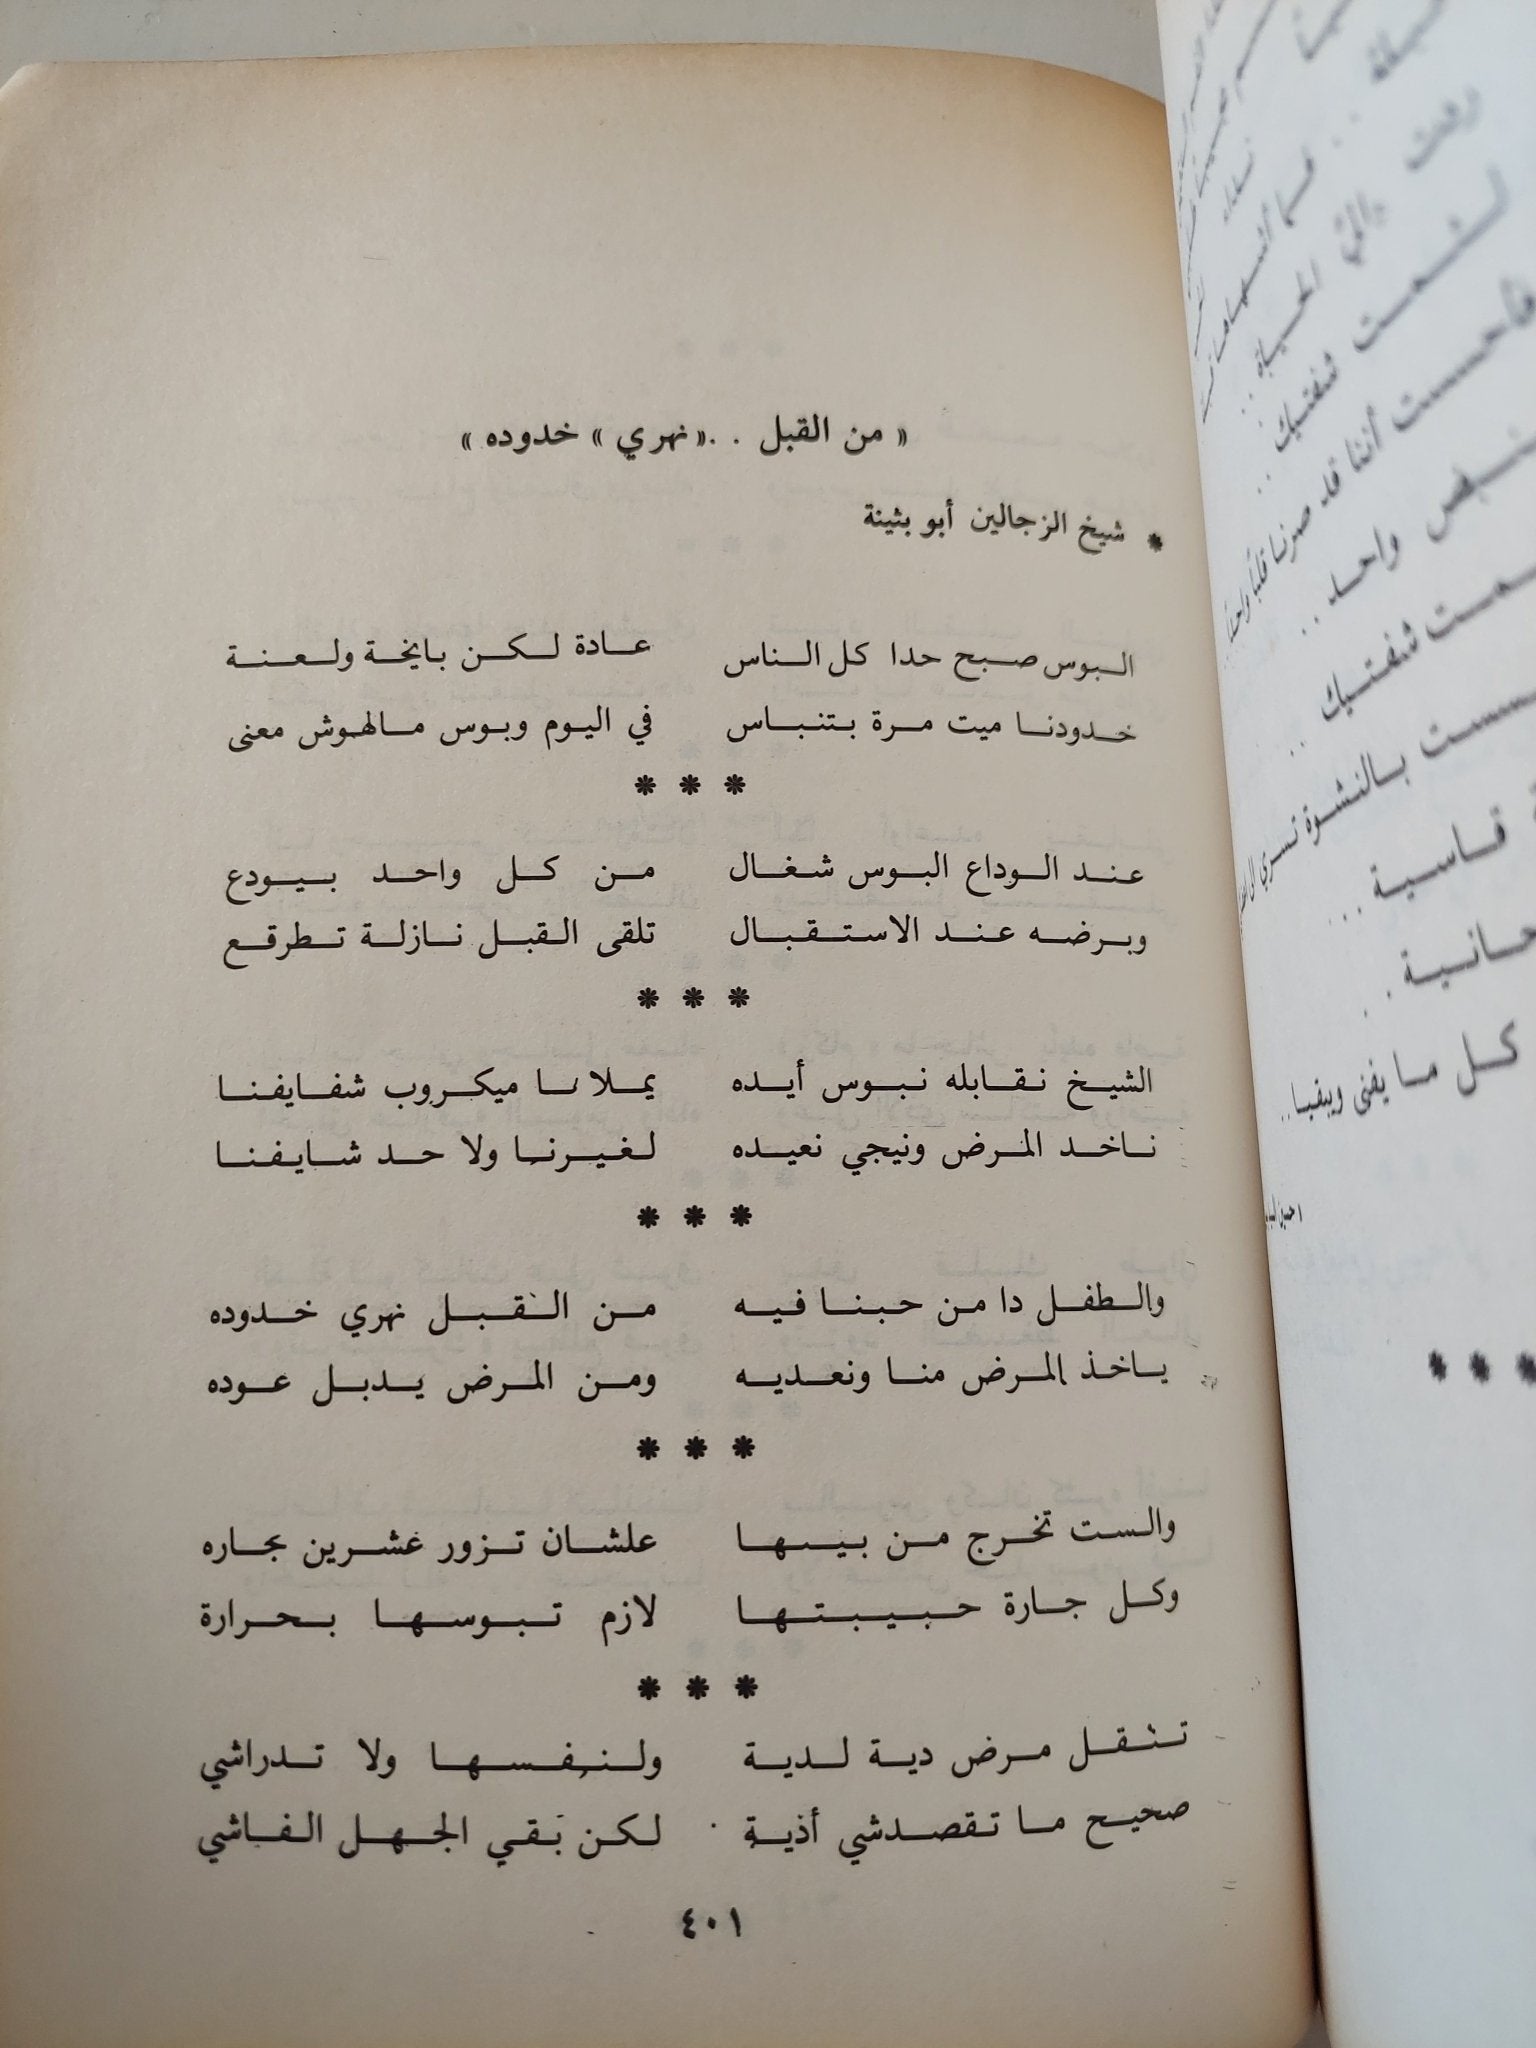 « من القبل . . « نهري » خدوده »
* شيخ الزجالين أبو بثينة
البوس صبح حدا كل الناس عادة لكن بايخة ولعنة
خدودنا ميت مرة بتنباس في اليوم وبوس مالهوش معنى
* * *
عند الوداع البوس شغال من كل واحد بيودع
وبرضه عند الاستقبال تلقى القبل نازلة تطرقع
* * *
الشيخ نقابله نبوس أيده يملا لنا ميكروب شفايفنا
ناخد المرض ونيجي نعيده لغيرنا ولا حد شايفنا
* * *
والطفل دا من حبنا فيه من القبل نهري خدوده
ياخذ المرض منا ونعديه ومن المرض يدبل عوده
* * *
والست تخرج من بيتها علشان تزور عشرين بجاره
وكل جارة حبيبتها لازم تبوسها بحرارة
* * *
تنقل مرض دية لدية ولنفسها ولا تدراشي
صحيح ما تقصدشي أذية لكن بقي الجهل الفاشي
٤٠١
والي الحياة . .
شفتيك . .
فأحست أننا قد صرنا قلباً واحداً
واحد . .
شفتيك . .
بالنشوة تسري الى
قاسية . . .
كل ما يفنى ويبقيا . .
* * *